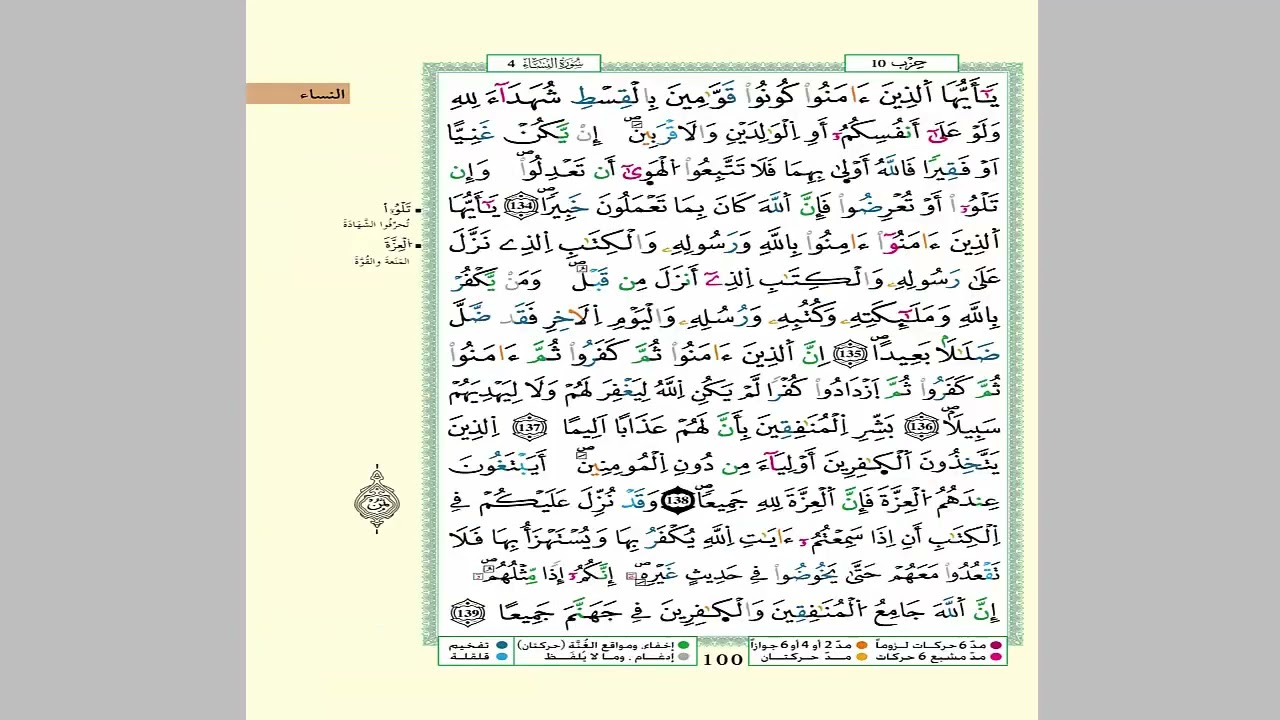 سُورَةُ النِّسَاء 4
حِزْب 10
النساء
يَٰٓأَيُّهَا اَ۬لذِينَ ءَامَنُواْ كُونُواْ قَوَّٰمِينَ بِالْقِسْطِ شُهَدَآءَ لِلهِ
وَلَوْ عَلَىٰٓ أَنفُسِكُمُۥٓ أَوِ اِ۬لْوَٰلِدَيْنِ وَالَاقْرَبِينَۖ إِنْ يَّكُنْ غَنِيّاً
اَوْ فَقِيراٗ فَاللَّهُ أَوْلَىٰ بِهِمَا فَلَا تَتَّبِعُواْ اُ۬لْهَوَىٰٓ أَن تَعْدِلُواْۖ وَإِن
تَلْوُۥٓاْ أَوْ تُعْرِضُواْ فَإِنَّ اَ۬للَّهَ كَانَ بِمَا تَعْمَلُونَ خَبِيراٗۖ 134 يَٰٓأَيُّهَا
اَ۬لذِينَ ءَامَنُوٓاْ ءَامِنُواْ بِاللَّهِ وَرَسُولِهِۦ وَالْكِتَٰبِ اِ۬لذِے نَزَّلَ
عَلَىٰ رَسُولِهِۦ وَالْكِتَٰبِ اِ۬لذِےٓ أَنزَلَ مِن قَبْلُۖ وَمَنْ يَّكْفُرْ
بِاللَّهِ وَمَلَٰٓئِكَتِهِۦ وَكُتُبِهِۦ وَرُسُلِهِۦ وَالْيَوْمِ اِ۬لَاخِرِ فَقَد ضَّلَّ
ضَلَٰلاَۢ بَعِيداًۖ 135 اِنَّ اَ۬لذِينَ ءَامَنُواْ ثُمَّ كَفَرُواْ ثُمَّ ءَامَنُواْ
ثُمَّ كَفَرُواْ ثُمَّ اَ۪زْدَادُواْ كُفْراٗ لَّمْ يَكُنِ اِ۬للَّهُ لِيَغْفِرَ لَهُمْ وَلَا لِيَهْدِيَهُمْ
سَبِيلاٗۖ 136 بَشِّرِ اِ۬لْمُنَٰفِقِينَ بِأَنَّ لَهُمْ عَذَاباً اَلِيماً 137 اِ۬لذِينَ
يَتَّخِذُونَ اَ۬لْكٰ۪فِرِينَ أَوْلِيَآءَ مِن دُونِ اِ۬لْمُومِنِينَۖ أَيَبْتَغُونَ
عِندَهُمُ اُ۬لْعِزَّةَ فَإِنَّ اَ۬لْعِزَّةَ لِلهِ جَمِيعاٗۖ 138 وَقَدْ نُزِّلَ عَلَيْكُمْ فِے
اِ۬لْكِتَٰبِ أَنِ اِذَا سَمِعْتُمُۥٓ ءَايَٰتِ اِ۬للَّهِ يُكْفَرُ بِهَا وَيُسْتَهْزَأُ بِهَا فَلَا
تَقْعُدُواْ مَعَهُمْ حَتَّىٰ يَخُوضُواْ فِے حَدِيثٍ غَيْرِهِۦٓۖ إِنَّكُمُۥٓ إِذاٗ مِّثْلُهُمُۥٓۖ
إِنَّ اَ۬للَّهَ جَامِعُ اُ۬لْمُنَٰفِقِينَ وَالْكٰ۪فِرِينَ فِے جَهَنَّمَ جَمِيعاً 139
تَلْوُۥٓاْ
تُحرّفُوا الشَّهَادَةَ
اَ۬لْعِزَّةَ
المَنَعَةَ والقُوَّةَ
ثمن
مدّ 6 حركات لـزوماً
مدّ 2 أو 4 أو 6 جوازاً
مدّ مشبع 6 حركات
مـدّ حـركتـان
100
إخفاء، ومواقع الغُنَّة (حركتان)
إدغـام ، ومـا لا يُلفَـظ
تفخيم
قلقلة